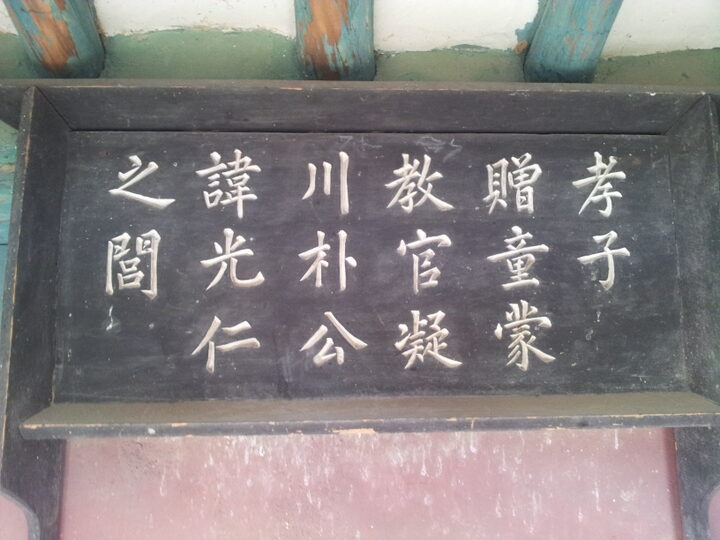 孝子
贈童蒙
教官凝
川朴公
諱光仁
之閭